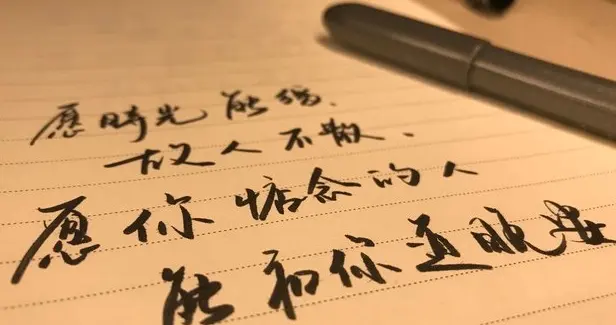 愿時光能缓、
故人不散、
愿你惦念的人
能和你道晚安